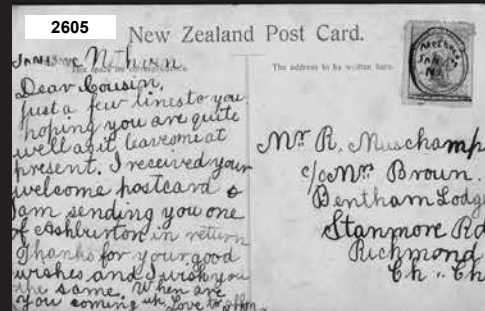 2605
New Zealand Post Card.
This space for correspondence.
The address to be written here.
Dear Cousin,
just a few lines to you
hoping you are quite
well as it leaves me at
present. I received your
welcome postcard &
I am sending you one
of Ashburton in return
Thanks for your good
wishes and I wish you
the same. When are
you coming up. Love to
Mr R. Muschamp
c/o Mrs Brown.
Bentham Lodge
Stanmore Rd
Richmond
Ch.. Ch